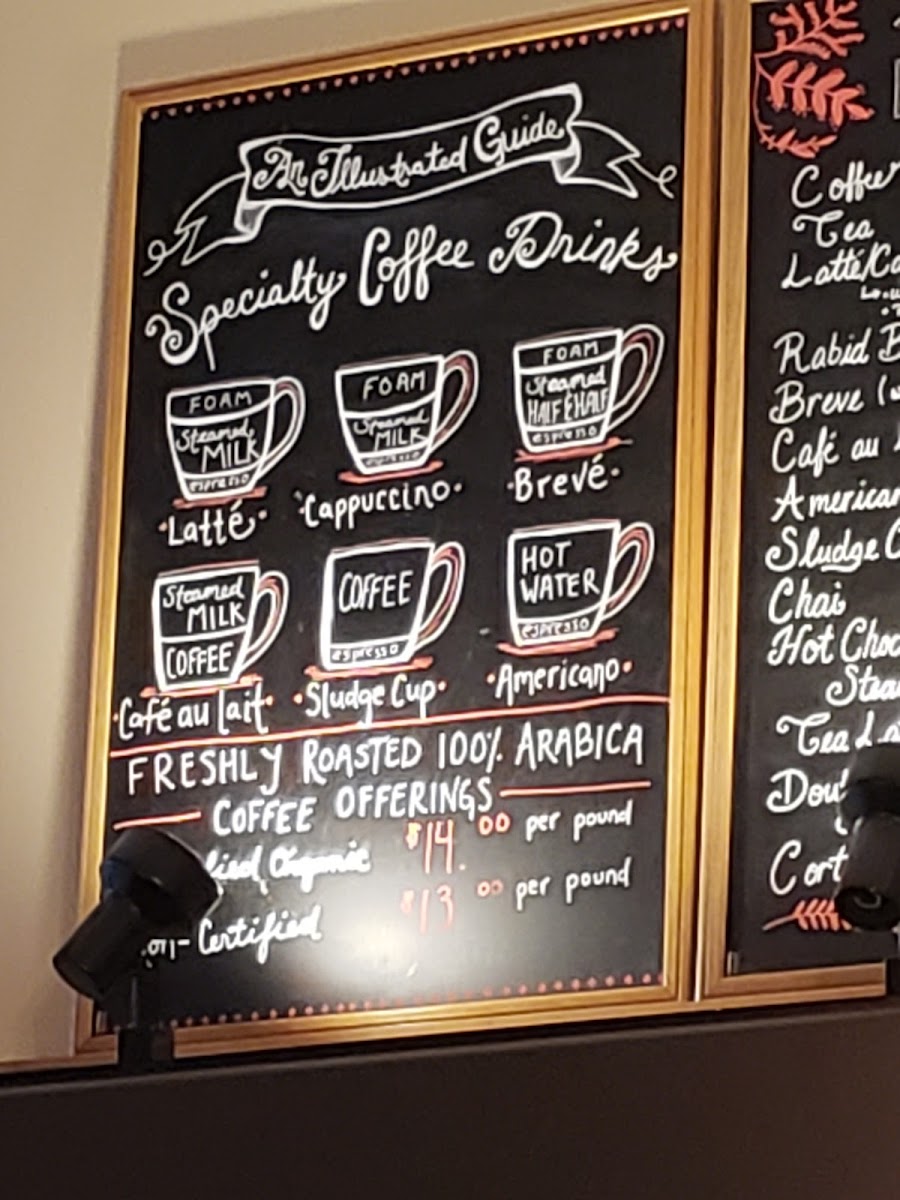 An Illustrated Guide
Specialty Coffee Drinks
FOAM
Steamed
MILK
espresso
·Latté·
FOAM
Steamed
MILK
espresso
·Cappuccino·
FOAM
Steamed
HALF & HALF
espresso
·Brevé·
Steamed
MILK
COFFEE
·Café au lait·
COFFEE
espresso
·Sludge Cup·
HOT
WATER
espresso
·Americano·
FRESHLY ROASTED 100% ARABICA
COFFEE OFFERINGS
Organic $14.00 per pound
Certified $13.00 per pound
Coffee
Tea
Latté/
Rabid
Breve
Café au
Sludge
Chai
Hot
Tea